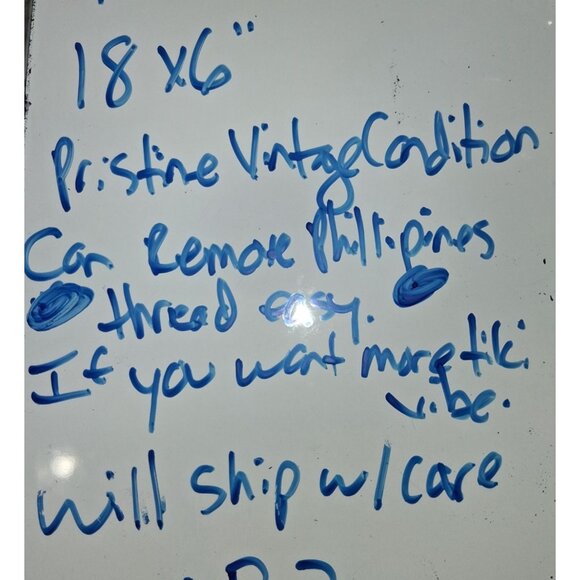 18 x6"
Pristine Vintage Condition
Can Remove Phillipines
thread easy.
If you want more tiki
vibe.
Will ship w/ care